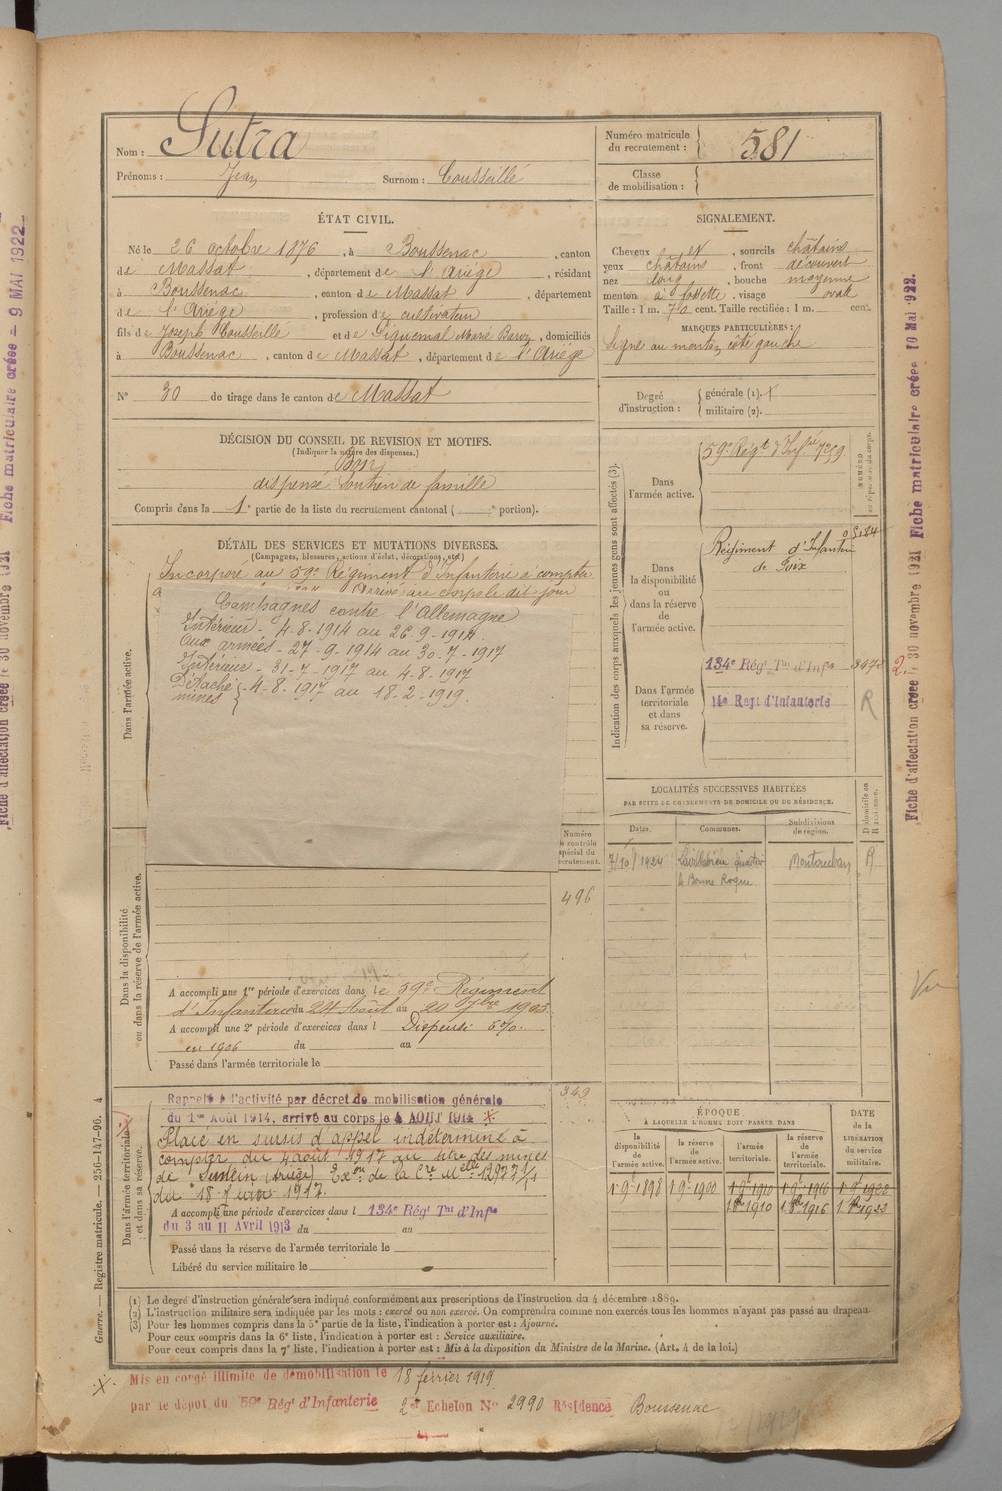 Nom : Sutra
Prénoms : Jean Surnom : Cousseillé
Numéro matricule du recrutement : 581
Classe de mobilisation :
ÉTAT CIVIL.
Né le 26 octobre 1876, à Boussenac, canton
de Massat, département de l'Ariège, résidant
à Boussenac, canton de Massat, département
de l'Ariège, profession de cultivateur
fils de Joseph Cousseille et de Piquemal Marie domiciliés
à Boussenac, canton de Massat, département de l'Ariège
SIGNALEMENT.
Cheveux et, sourcils châtains
yeux châtains, front découvert
nez long, bouche moyenne
menton à fossette, visage ovale
Taille : 1 m. 70 cent. Taille rectifiée : 1 m. cent.
MARQUES PARTICULIÈRES :
Signe au menton côté gauche
N° 30 de tirage dans le canton de Massat
Degré d'instruction : générale (1).
militaire (2).
DÉCISION DU CONSEIL DE REVISION ET MOTIFS.
(Indiquer la nature des dispenses.)
Bon
dispensé Soutien de famille
Compris dans la 1e partie de la liste du recrutement cantonal ( e portion).
DÉTAIL DES SERVICES ET MUTATIONS DIVERSES.
(Campagnes, blessures, actions d'éclat, décorations, etc.)
Incorporé au 59e Régiment d'Infanterie à compter
Arrivé au corps le dit jour
Campagnes contre l'Allemagne
Intérieur - 4-8-1914 au 26-9-1914
Aux armées - 27-9-1914 au 30-7-1917
Intérieur - 31-7-1917 au 4-8-1917
Détaché mines - 4-8-1917 au 18-2-1919.
Dans l'armée active.
Numéro au contrôle spécial du recrutement.
496
Dans la disponibilité ou dans la réserve de l'armée active.
A accompli une 1re période d'exercices dans le 59e Régiment
d'Infanterie du 24 Août au 20 7bre 1903
A accompli une 2e période d'exercices dans l Dispensé
en 1906 du au
Passé dans l'armée territoriale le
349
Dans l'armée territoriale et dans sa réserve.
Rappelé à l'activité par décret de mobilisation générale
du 1er Août 1914, arrivé au corps le 4 AOUT 1914 X.
Placé en sursis d'appel indéterminé à
compter du 4 août 1917 au titre des mines
de Sentein (Ariège) Exon de la Cre Melle 12977 1/11
du 18 Juin 1917.
A accompli une période d'exercices dans l 134e Régt Tal d'Infie
du 3 au 11 Avril 1913 du au
Passé dans la réserve de l'armée territoriale le
Libéré du service militaire le
Indication des corps auxquels les jeunes gens sont affectés (3).
NUMÉRO au répertoire du corps.
Dans l'armée active.
59e Régt d'Infie 7259
Dans la disponibilité ou dans la réserve de l'armée active.
Régiment d'Infanterie
de Foix
Dans l'armée territoriale et dans sa réserve.
134e Régt Tal d'Infie
14e Regt d'Infanterie
R
LOCALITÉS SUCCESSIVES HABITÉES
PAR SUITE DE CHANGEMENTS DE DOMICILE OU DE RÉSIDENCE.
Dates. Communes. Subdivisions de région. D domicile ou R résidence.
7/10/1924 Lavilledieu quartier Montauban R
de Bonne Roque
ÉPOQUE
À LAQUELLE L'HOMME DOIT PASSER DANS
la disponibilité de l'armée active. la réserve de l'armée active. l'armée territoriale. la réserve de l'armée territoriale.
DATE DE LA LIBÉRATION DU service militaire.
1.9bre 1898 1.9bre 1900 1.9bre 1910 1.9bre 1916 1.9bre 1922
1.8bre 1910 1.8bre 1916 1.8bre 1923
(1) Le degré d'instruction générale sera indiqué conformément aux prescriptions de l'instruction du 4 décembre 1889.
(2) L'instruction militaire sera indiquée par les mots : exercé ou non exercé. On comprendra comme non exercés tous les hommes n'ayant pas passé au drapeau.
(3) Pour les hommes compris dans la 5e partie de la liste, l'indication à porter est : Ajourné.
Pour ceux compris dans la 6e liste, l'indication à porter est : Service auxiliaire.
Pour ceux compris dans la 7e liste, l'indication à porter est : Mis à la disposition du Ministre de la Marine. (Art. 4 de la loi.)
X. Mis en congé illimité de démobilisation le 18 février 1919
par le dépot du 59e Régt d'Infanterie 2e Echelon N° 2990 Résidence Boussenac
Guerre. — Registre matricule. — 256-147-96. 4
Fiche d'affectation créée le 30 novembre 1921 Fiche matriculaire créée 10 Mai 1922.
Fiche d'affectation créée le 30 novembre 1921 Fiche matriculaire créée - 9 MAI 1922
Vu